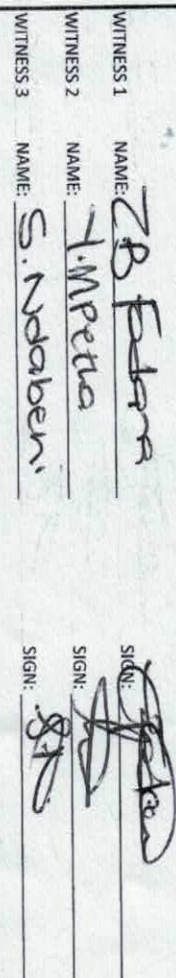 WITNESS 1 NAME: ZB SIGN:
WITNESS 2 NAME: Y. Mpetha SIGN:
WITNESS 3 NAME: S. Ndabeni SIGN: